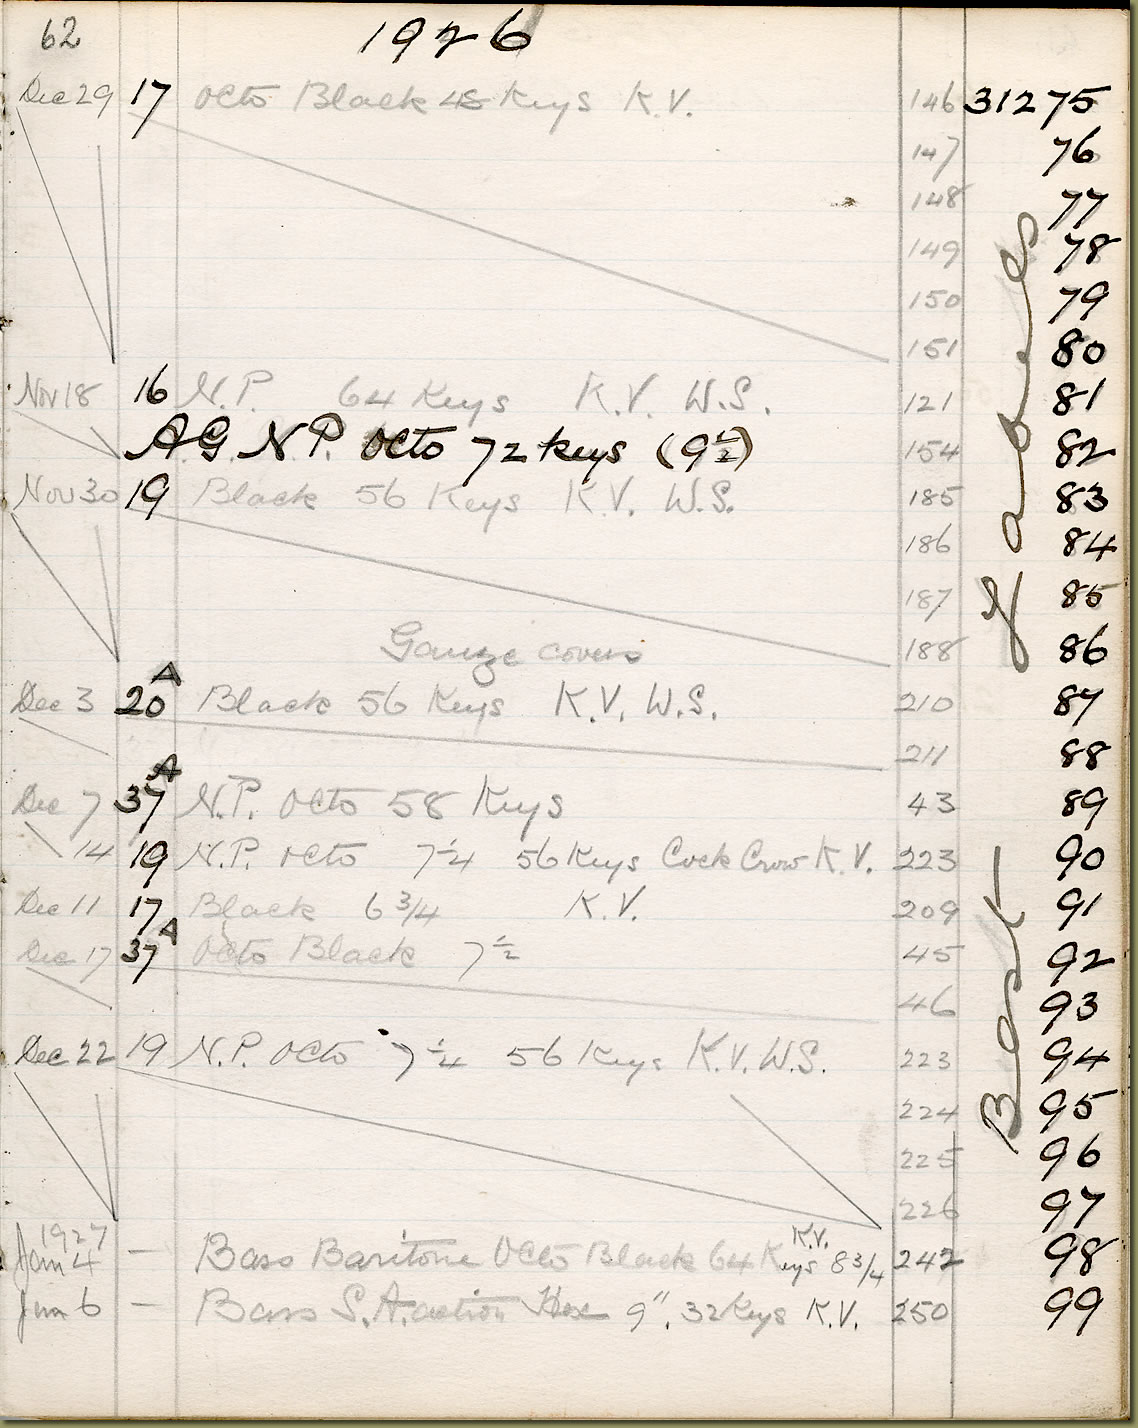 62 1926
Dec 29 17 Octo Black 48 Keys K.V. 146 31275
147 76
148 77
149 78
150 79
151 80
Nov 18 16 N.P. 64 Keys K.V. W.S. 121 81
AG N.P. Octo 72 keys (9½) 154 82
Nov 30 19 Black 56 Keys K.V. W.S. 185 83
186 84
187 85
Gauze covers 188 86
Dec 3 20A Black 56 Keys K.V. W.S. 210 87
211 88
Dec 7 37A N.P. Octo 58 Keys 43 89
14 19 N.P. Octo 7¼ 56 Keys Cock Crow K.V. 223 90
Dec 11 17 Black 6 3/4 K.V. 209 91
Dec 17 37A Octo Black 7½ 45 92
46 93
Dec 22 19 N.P. Octo 7¼ 56 Keys K.V. W.S. 223 94
224 95
225 96
226 97
1927
Jan 4 — Bass Baritone Octo Black 64 Keys K.V. 8 3/4 242 98
Jan 6 — Bass S.A. action Hex 9", 32 Keys K.V. 250 99
Best